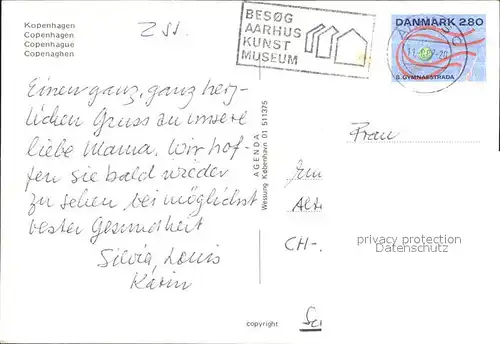 Kopenhagen
Copenhagen
Copenhague
Copenaghen
BESØG
AARHUS
KUNST
MUSEUM
DANMARK 2.80
8. GYMNAESTRADA
Einen ganz, ganz herz-
lichen Gruss an unsere
liebe Mama. Wir hof-
fen sie bald wieder
zu sehen bei möglichst
bester Gesundheit
Silvia, Louis
Karin
AGENDA
Wessung København 01 511375
Frau
CH-.
privacy protection
Datenschutz
copyright